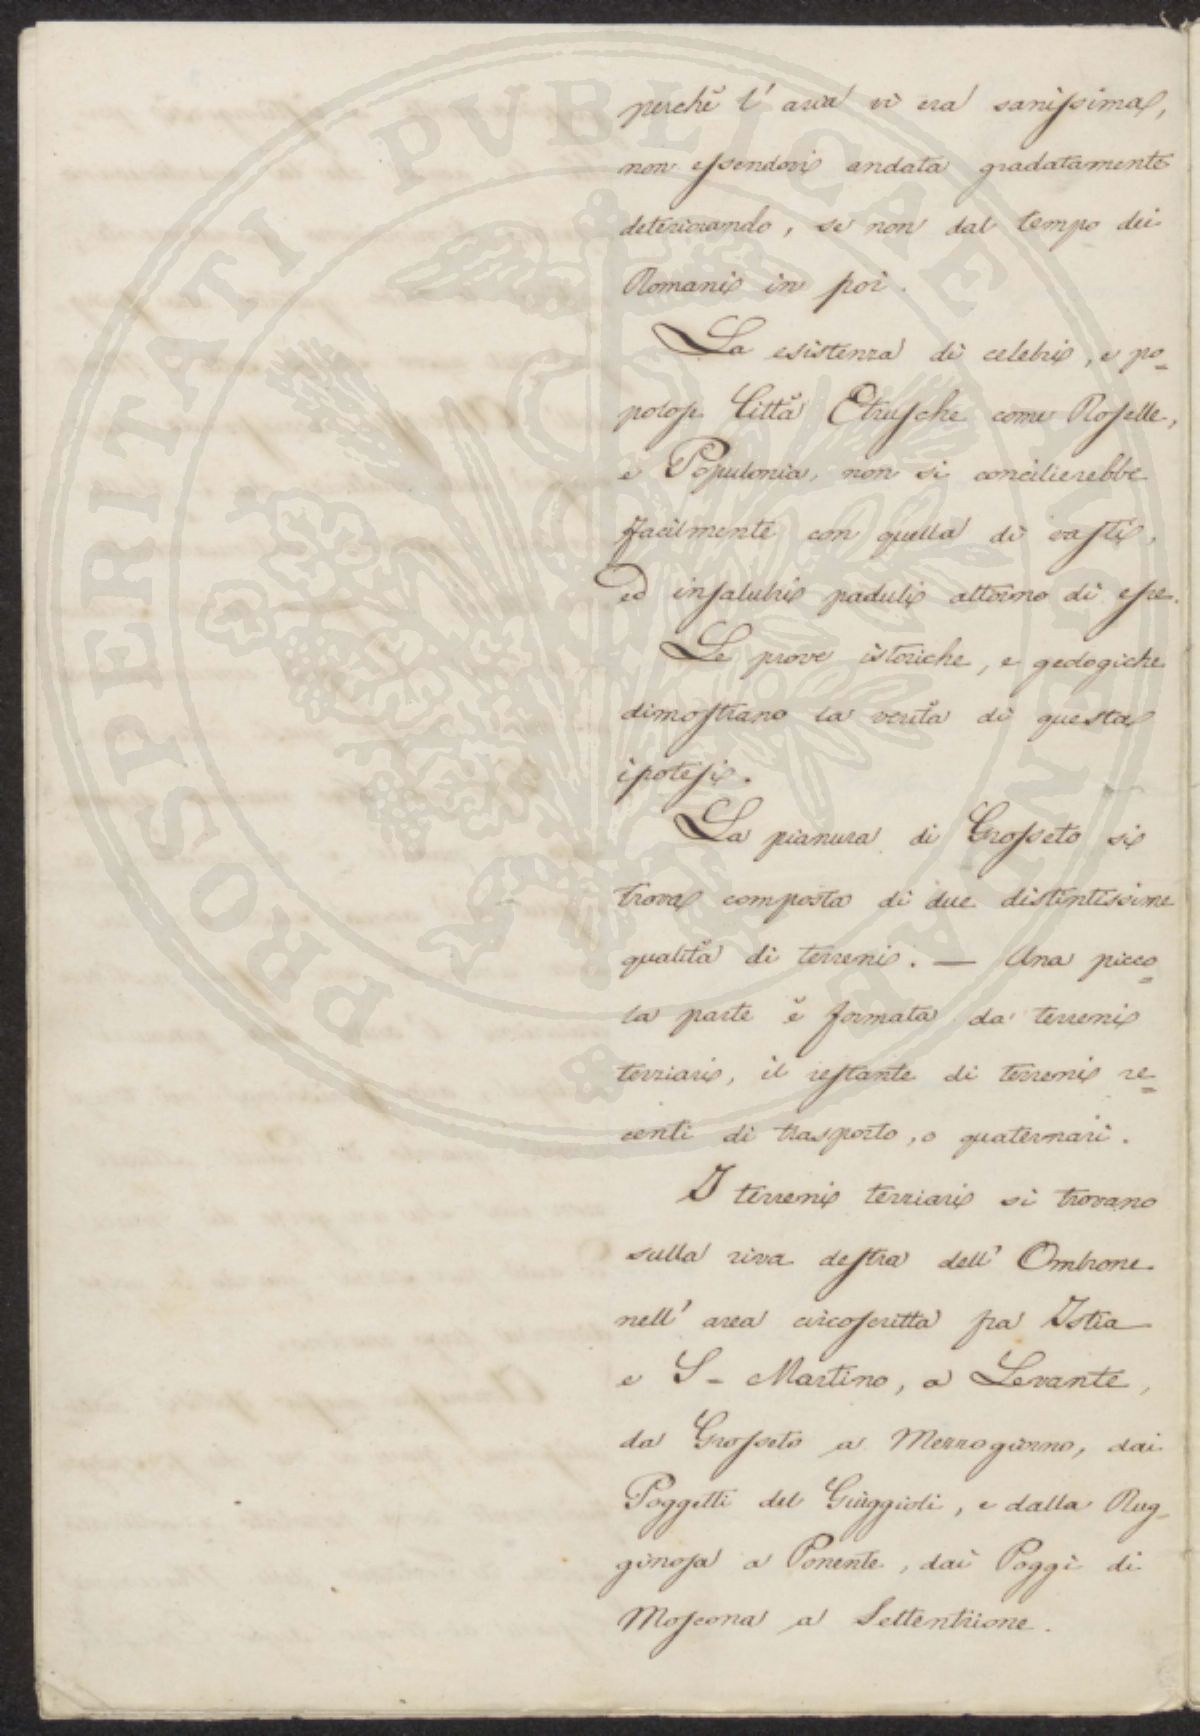 perchè l'aria vi era sanissima,
non essendovi andata gradatamente
deteriorando, se non dal tempo dei
Romani in poi.
La esistenza di celebri, e po=
polose Città Etrusche come Roselle,
e Populonia, non si concilierebbe
facilmente con quella di vasti,
ed insalubri paduli attorno di esse.
Le prove istoriche, e geologiche
dimostrano la verità di questa
ipotesi.
La pianura di Grosseto si
trova composta di due distintissime
qualità di terreni. — Una picco=
la parte è formata da terreni
terziari, il restante di terreni re=
centi di trasporto, o quaternari.
I terreni terziari si trovano
sulla riva destra dell'Ombrone
nell'area circoscritta fra Istia
e S- Martino, a Levante,
da Grosseto a Mezzogiorno, dai
Poggetti del Giuggioli, e dalla Rug-
ginosa a Ponente, dai Poggi di
Moscona a Settentrione.
PROSPERITATI PVBLICAE AVGENDAE